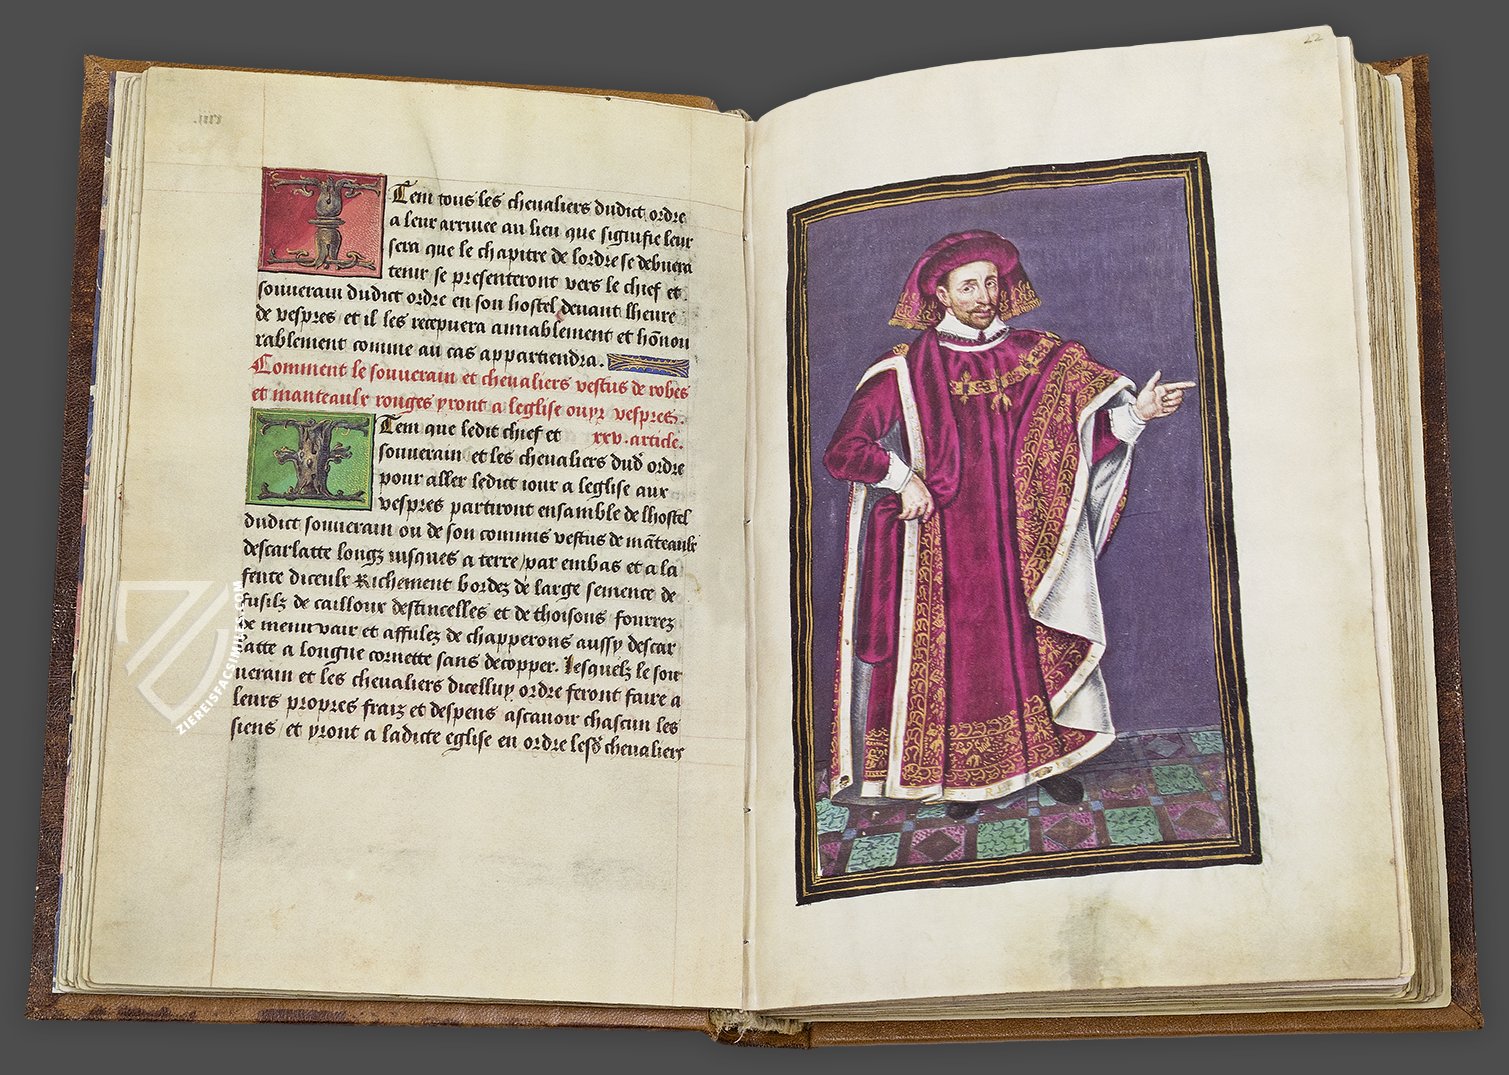 Item tous les cheualiers dudict ordre
a leur arriuee au lieu que signifie leur
sera que le chapitre de lordre se debuera
tenir se presenteront vers le chief et
souuerain dudict ordre en son hostel deuant lheure
de vespres et il les recepuera amiablement et hōnou
rablement comme au cas appartiendra.
Comment le souuerain et cheualiers vestus de robes
et manteaulx rouges yront a leglise ouyr vespres.
Item que ledit chief et xxv. article.
souuerain et les cheualiers dud ordre
pour aller ledict iour a leglise aux
vespres partiront ensamble de lhostel
dudict souuerain ou de son commis vestus de māteaulx
descarlatte longz iusques a terre/par embas et a la
fente diceulx Richement bordez de large semence de
fusilz de cailloux destincelles et de thoisons fourrez
de menu vair et affulez de chapperons aussy descar
latte a longue cornette sans decopper. lesquelz le sou
uerain et les cheualiers dicelluy ordre feront faire a
leurs propres fraiz et despens ascauoir chascun les
siens et yront a ladicte eglise en ordre lesd cheualiers
22
ZIEREISFACSIMILES.COM